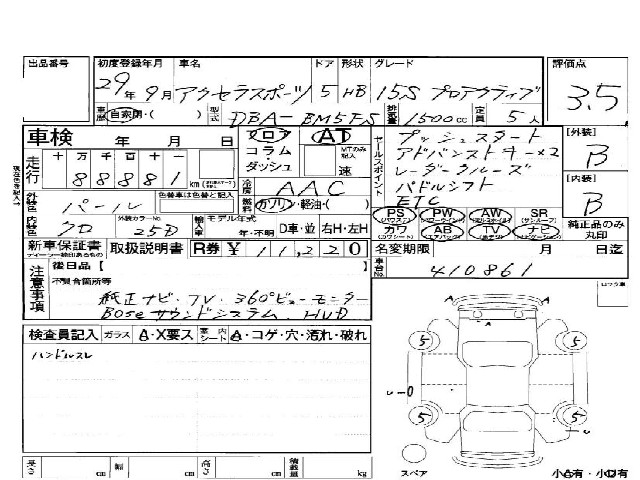 出品番号 初度登録年月 車名 ドア 形状 グレード 評価点
29年9月 アクセラスポーツ 5 HB 15S プロアクティブ 3.5
車歴 自家用・( ) 型式 DBA-BM5FS 排気量 1500cc 定員 5人
車検 年 月 日 フロア AT
走行 十 万 千 百 十 一 コラム MTのみ記入
88881 km ダッシュ 速
セールスポイント
プッシュスタート
アドバンストキー×2
レーダークルーズ
パドルシフト
ETC
[外装] B
[内装] B
冷房 AAC
外装色 パール 色替車は色替と記入 燃料 ガソリン・軽油・( )
内装色 クロ 外装カラーNo. 25D 輸入車 モデル年式 年・不明 D車・並 右H・左H
PS AW SR PW
カワ AB TV ナビ
純正品のみ丸印
新車保証書 取扱説明書 R券 ¥ 11,220 名変期限 月 日迄
注意事項 後日品【 】 車台No. 410861
不具合箇所等
純正ナビ・TV・360°ビューモニター
BOSEサウンドシステム、HUD
検査員記入 ガラス A・X要ス 室内シート A・コゲ・穴・汚れ・破れ
ハンドルスレ
A A
5 5
5 5
スペア
小A有・小U有
長さ cm 幅 cm 高さ cm 積載量 kg